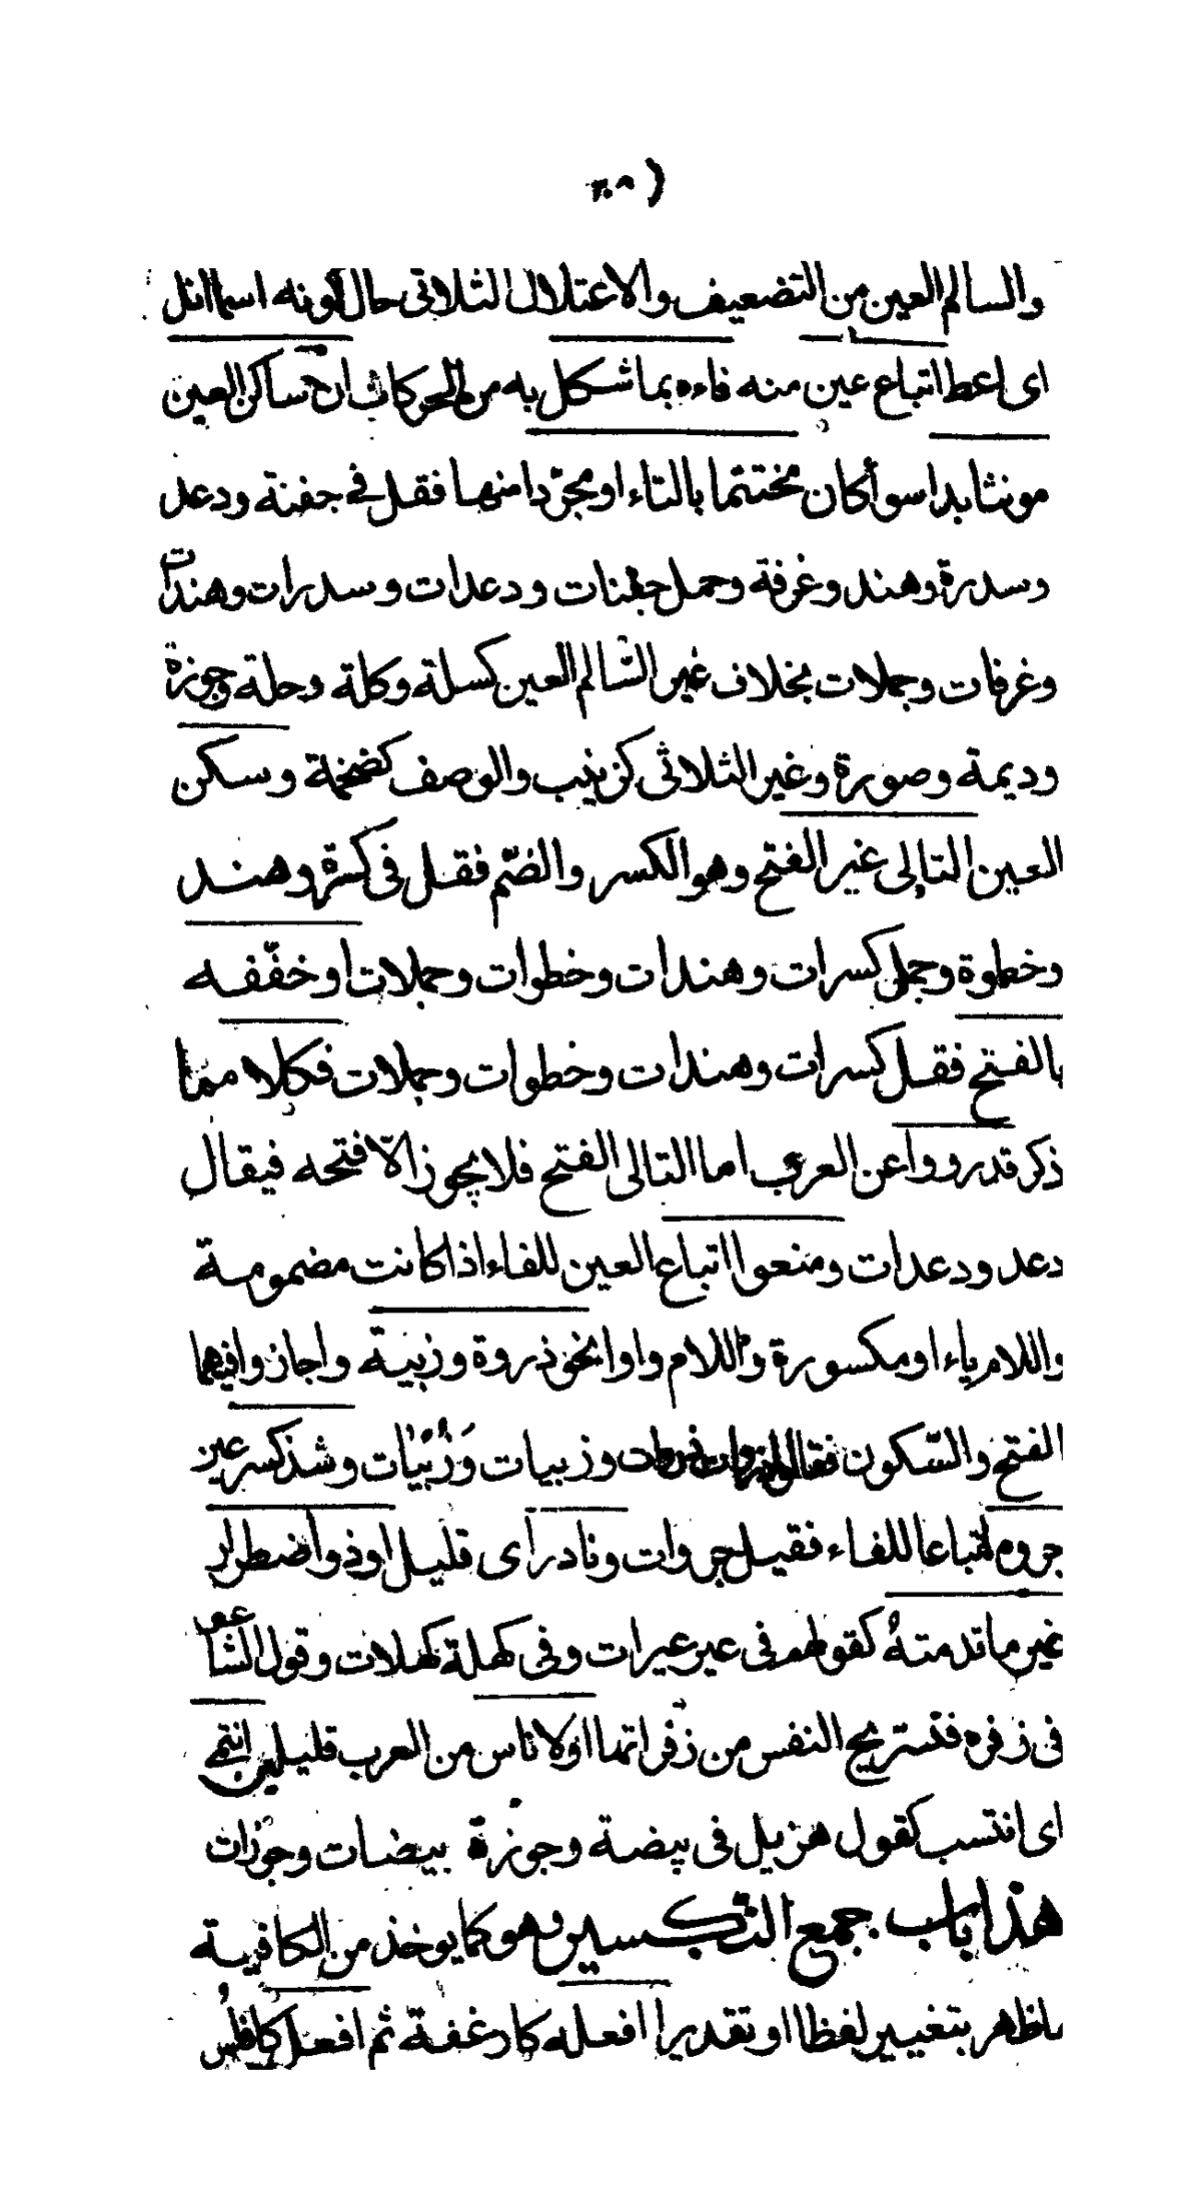 والسالم العين من التضعيف والاعتلال الثلاثى حال كونه اسما انل
اى اعط اتباع عين منه فاءه بما شكل به من الحركات ان ساكن العين
مونثا بدا سوأ كان مختتما بالتاء او مجرّدا منها فقل في جفنة ودعد
وسدرة وهند وغرفة وجمل جفنات ودعدات وسدرات وهندات
وغرفات وجملات بخلاف غير السّالم العين كسلة وكلة وحلة وجوزة
وديمة وصورة وغير الثلاثى كزينب والوصف كضخمة وسكن
العين التالى غير الفتح وهو الكسر والضّم فقل فى كسرة وهند
وخطوة وجمل كسرات وهندات وخطوات وجملات او خفّفه
بالفتح فقل كسرات وهندات وخطوات وجملات فكلا مما
ذكر قد رووا عن العرب اما التالى الفتح فلا يجوز الّا فتحه فيقال
دعد ودعدات ومنعوا اتباع العين للفاء اذا كانت مضمومة
واللام ياء او مكسورة واللام واوا نحو ذروة وزبية واجازوا فيهما
الفتح والسّكون فقالوا ذروات وزبيات وَزُبَيَات وشذ كسر عين
جروه اتباعا للفاء فقيل جروات ونادر اى قليل او ذو اضطرار
غير ما قدمتهُ كقولهم فى عير عيرات وفى كهلة كهلات وقول الشاعر
فى زفره فتستريح النفس من زفراتها او لاناس من العرب قليلين انتمى
اى انتسب كقول هزيل فى بيضة وجوزة بيضات وجوزات
هذا باب جمع التكسير وهو كما يوخذ من الكافية
ماظهر بتغيير لفظا او تقديرا افعله كارغفة ثم افعل كافلس